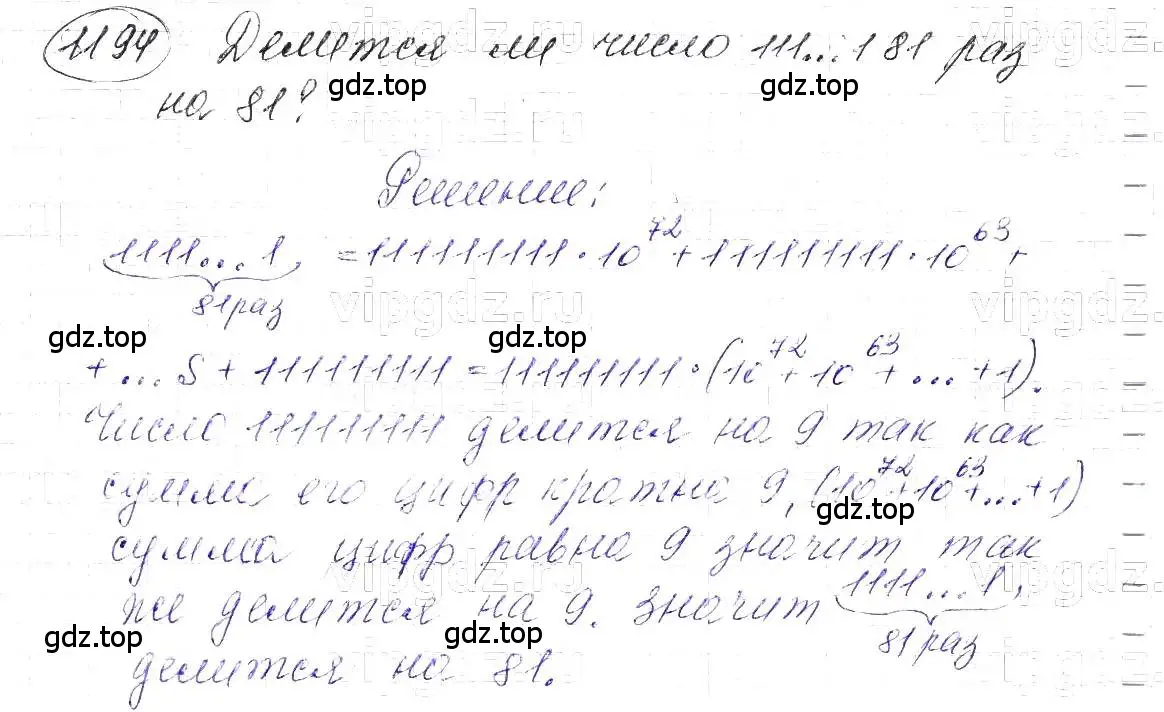 1194 Делится ли число 111...1 81 раз
на 81?
Решение:
1111...1, = 111111111·10^72 + 111111111·10^63 +
81 раз
+ ... S + 111111111 = 111111111·(10^72 + 10^63 + ... + 1).
Число 111111111 делится на 9 так как
сумма его цифр кратна 9, (10^72 + 10^63 + ... + 1)
сумма цифр равна 9 значит так
же делится на 9. значит 1111...1,
81 раз
делится на 81.
gdz.top gdz.top
gdz.top gdz.top
gdz.top
gdz.top gdz.top gdz.top
vipgdz.ru
vipgdz.ru